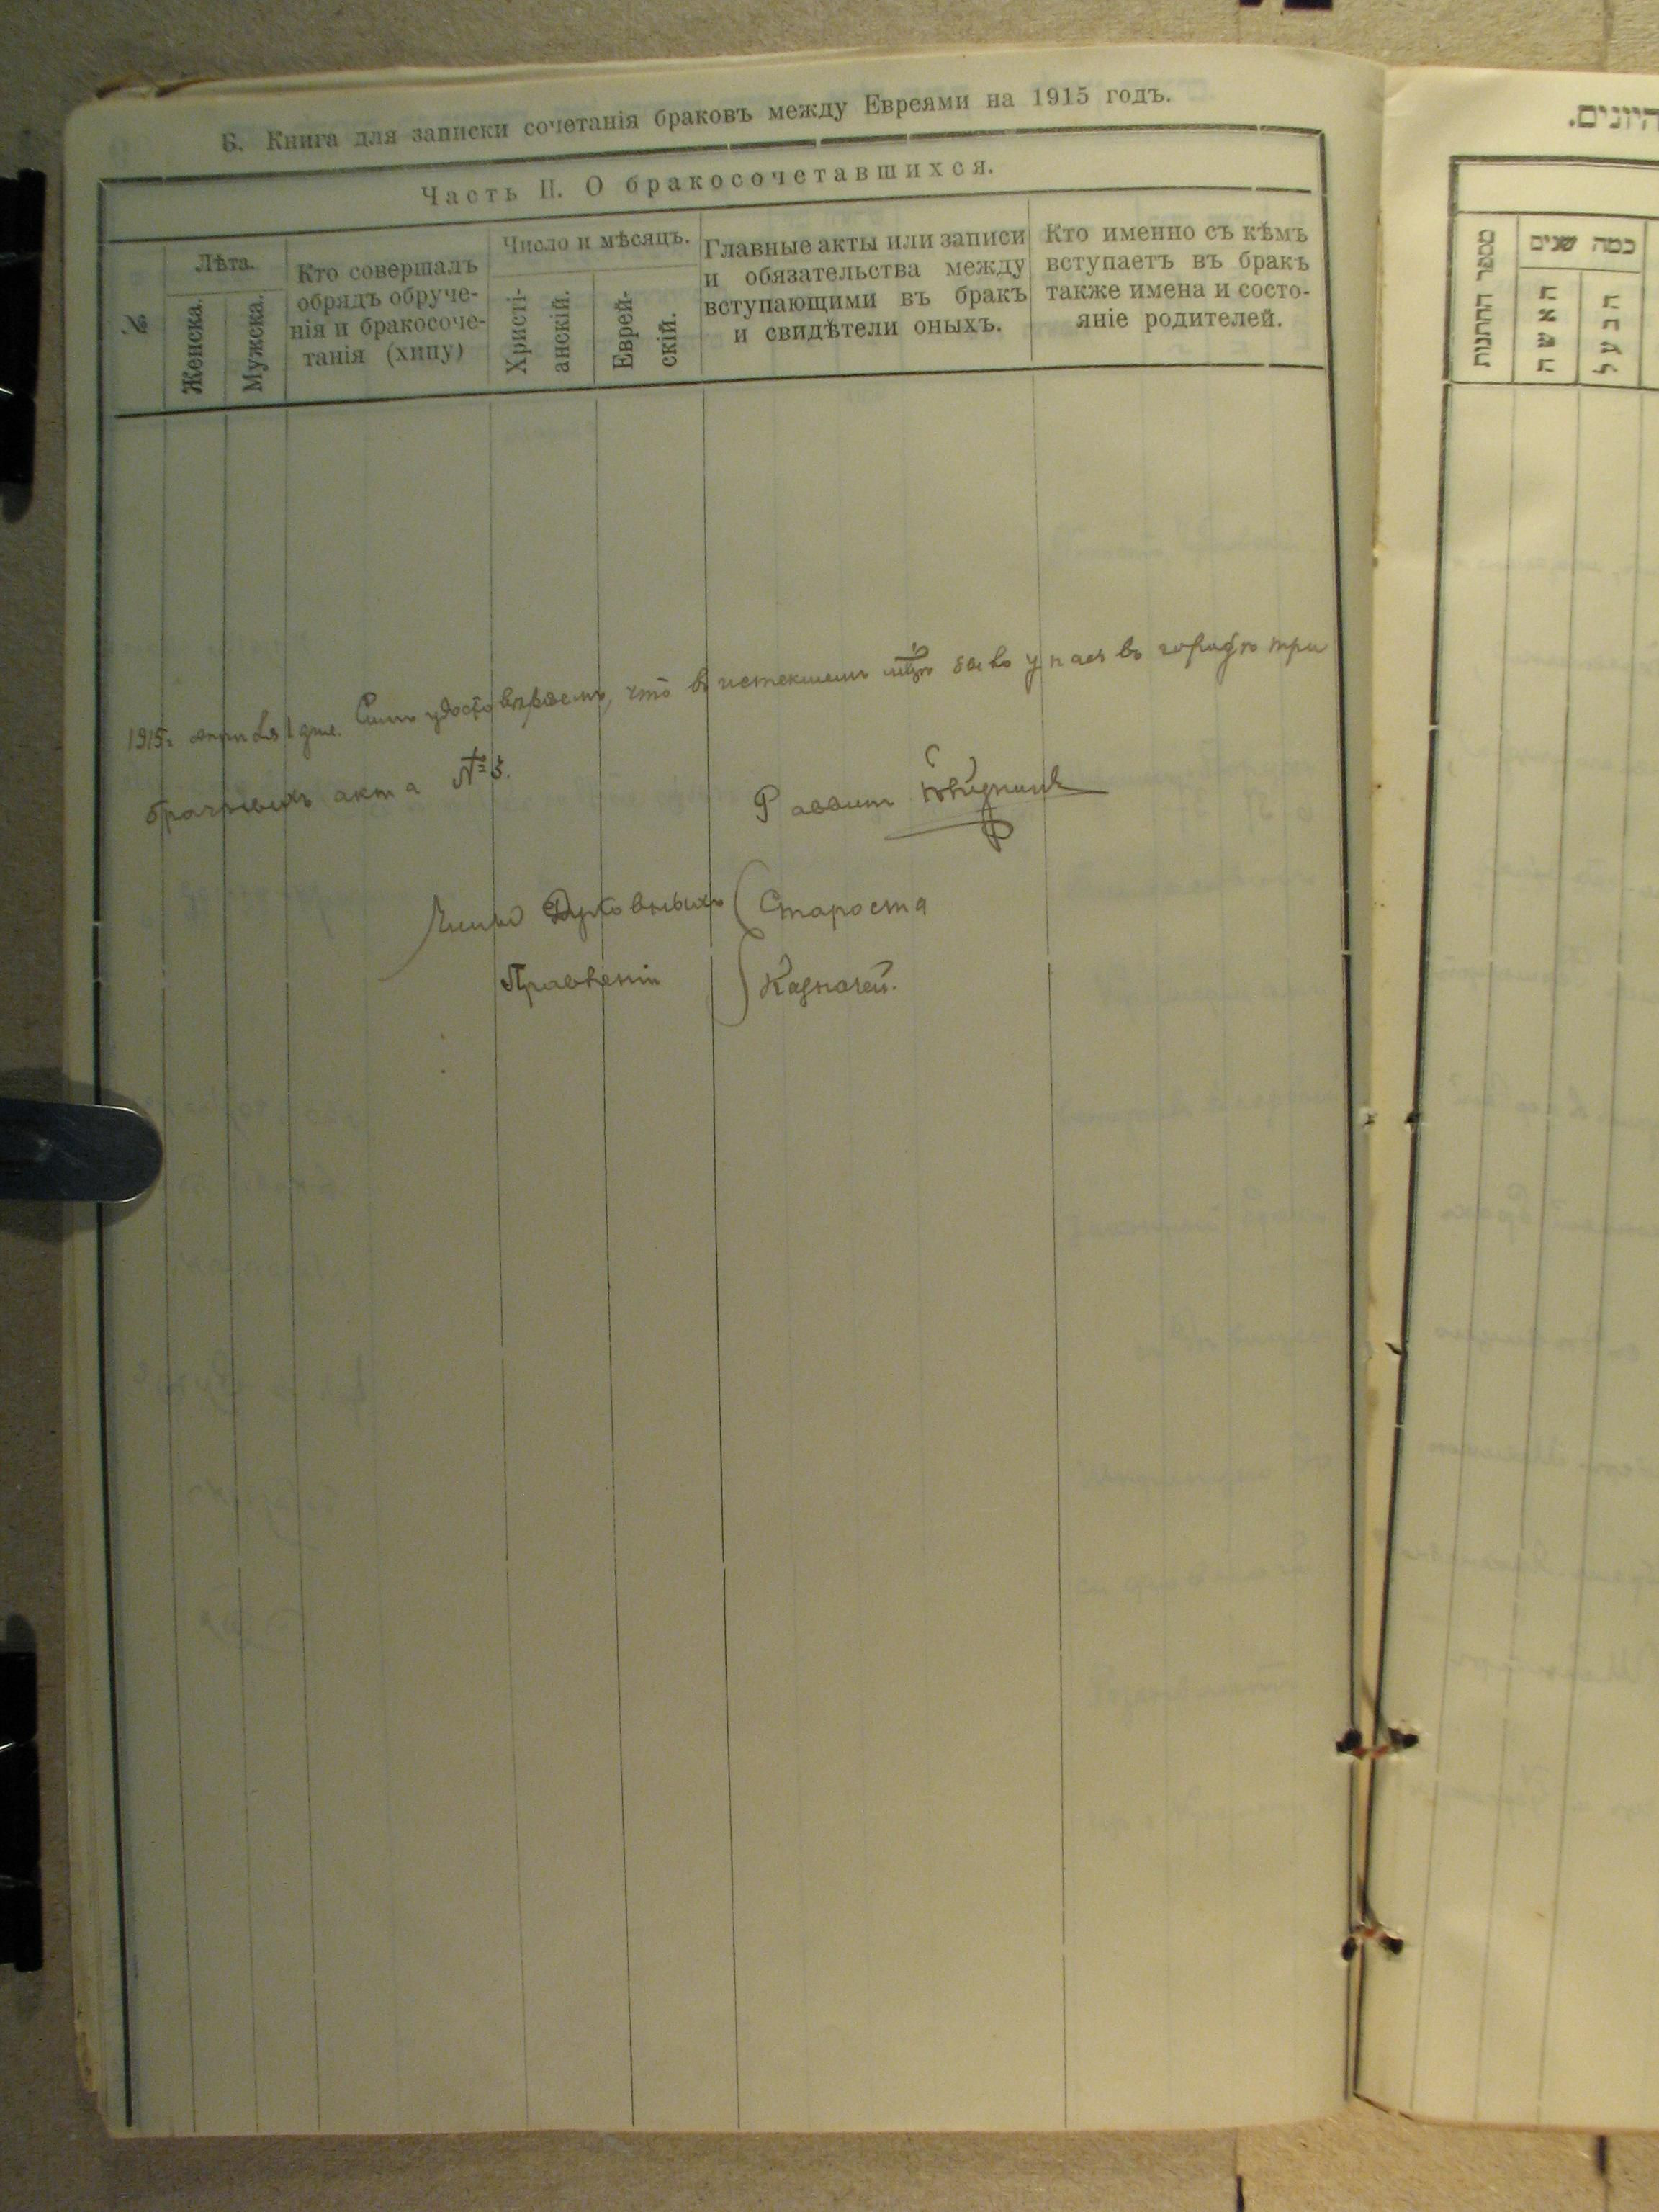 Б. Книга для записки сочетанія браковъ между Евреями на 1915 годъ.
Часть II. О бракосочетавшихся.
№
Лѣта.
Женска.
Мужска.
Кто совершалъ
обрядъ обруче-
нія и бракосоче-
танія (хипу)
Число и мѣсяцъ.
Христі-
анскій.
Еврей-
скій.
Главные акты или записи
и обязательства между
вступающими въ бракъ
и свидѣтели оныхъ.
Кто именно съ кѣмъ
вступаетъ въ бракъ
также имена и состо-
яніе родителей.
1915 г. апрѣля 1 дня. Симъ удостовѣряемъ, что въ истекшемъ мцѣ было у насъ въ городѣ три
брачныхъ акта № 3.
Раввинъ
Члены Духовныхъ ( Староста
Правленія { Казначей.
היונים.
מספר החתנות
כמה שנים
האשה
הבעל